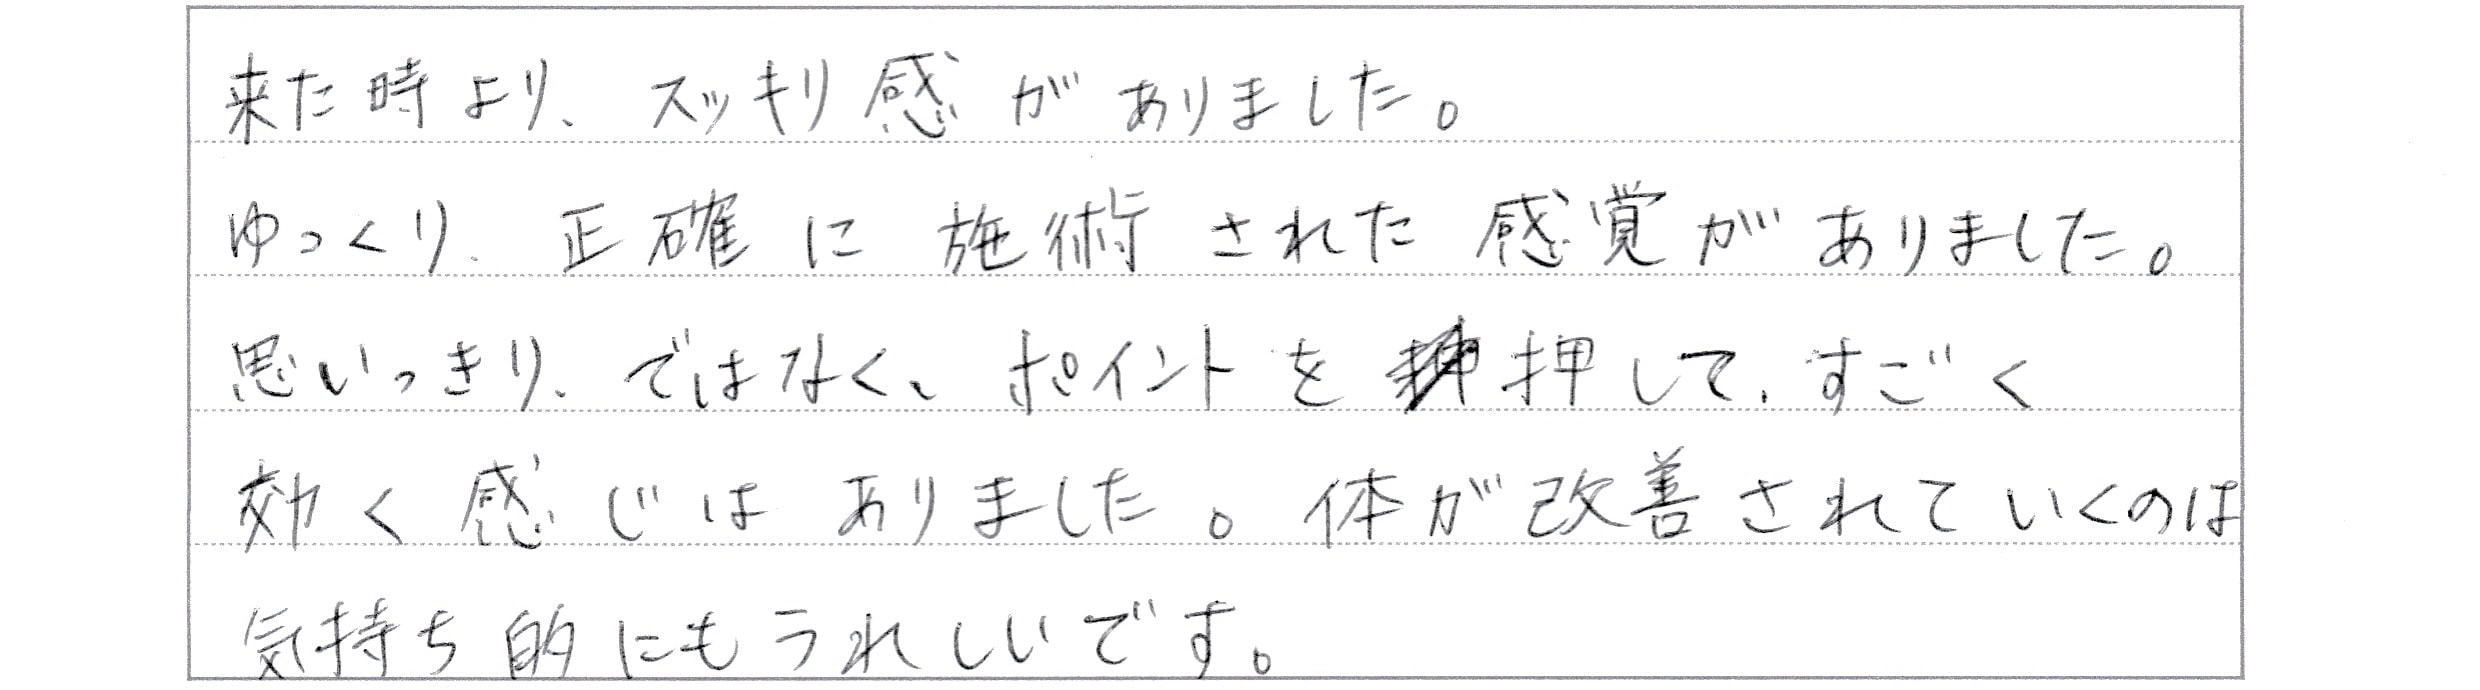 来た時より、スッキリ感がありました。
ゆっくり、正確に施術された感覚がありました。
思いっきり、ではなく、ポイントを押して、すごく
効く感じはありました。体が改善されていくのは
気持ち的にもうれしいです。